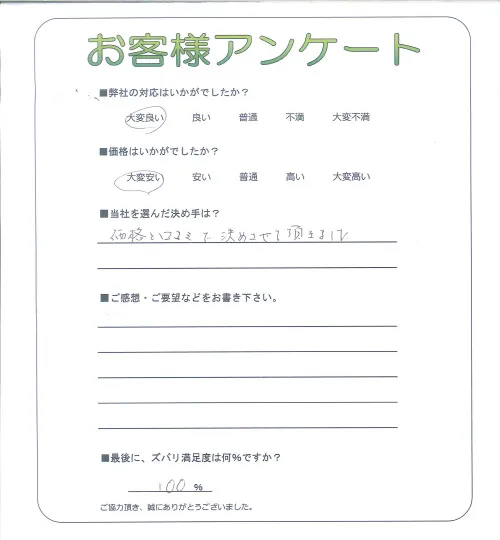 お客様アンケート
■弊社の対応はいかがでしたか？
大変良い 良い 普通 不満 大変不満
■価格はいかがでしたか？
大変安い 安い 普通 高い 大変高い
■当社を選んだ決め手は？
価格と口コミで決めさせて頂きました
■ご感想・ご要望などをお書き下さい。
■最後に、ズバリ満足度は何％ですか？
100 %
ご協力頂き、誠にありがとうございました。